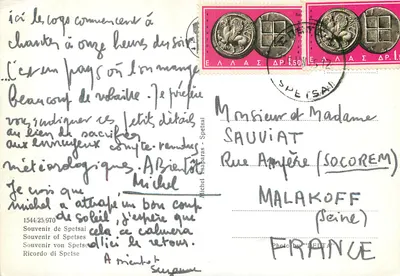 ici les coqs commencent à
chanter à onze heures du soir
... C'est un pays où l'on mange
beaucoup de volaille. Je préfère
vous indiquer ces petits détails
au lieu de sacrifier
aux ennuyeux compte-rendus
météorologiques. A Bientôt
Michel
Je crois que
michel a attrapé un bon coup
de soleil, j'espère que
cela se calmera
d'ici le retour.
A bientôt
Suzanne
1544/25/970
Souvenir de Spetsai
Souvenir of Spetses
Souvenir von Spetsai
Ricordo di Spetse
ΕΛΛΑΣ ΔΡ. 1,50
ΕΛΛΑΣ ΔΡ. 1
SPETSAI
Monsieur et Madame
SAUVIAT
Rue Ampère (SOCOREM)
MALAKOFF
(Seine)
FRANCE